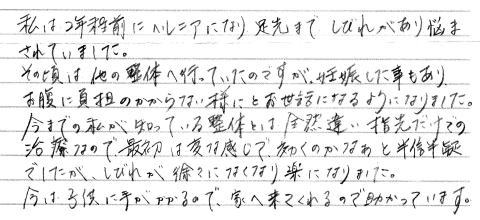 私は2年程前にヘルニアになり 足先まで しびれがあり悩ま
されていました。
その頃は 他の整体へ行っていたのですが、妊娠した事もあり
お腹に負担のかからない様にとお世話になるようになりました。
今までの私が知っている整体とは全然違い 指先だけでの
治療なので、最初は変な感じで、効くのかなぁと半信半疑
でしたが、しびれが徐々になくなり楽になりました。
今は子供に手がかかるので、家へ来てくれるので助かっています。